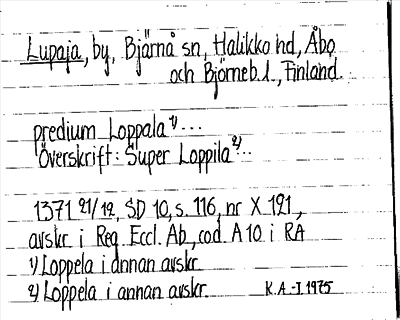 Lupaja, by, Bjärnå sn, Halikko hd, Åbo
och Björneb. l., Finland.
predium Loppala 1) ...
Överskrift: Super Loppila 2) ..
1371 21/12, SD 10, s. 116, nr X 191,
avskr. i Reg. Eccl. Ab., cod. A 10 i RA
1) Loppela i annan avskr.
2) Loppela i annan avskr. K.A.-I. 1975